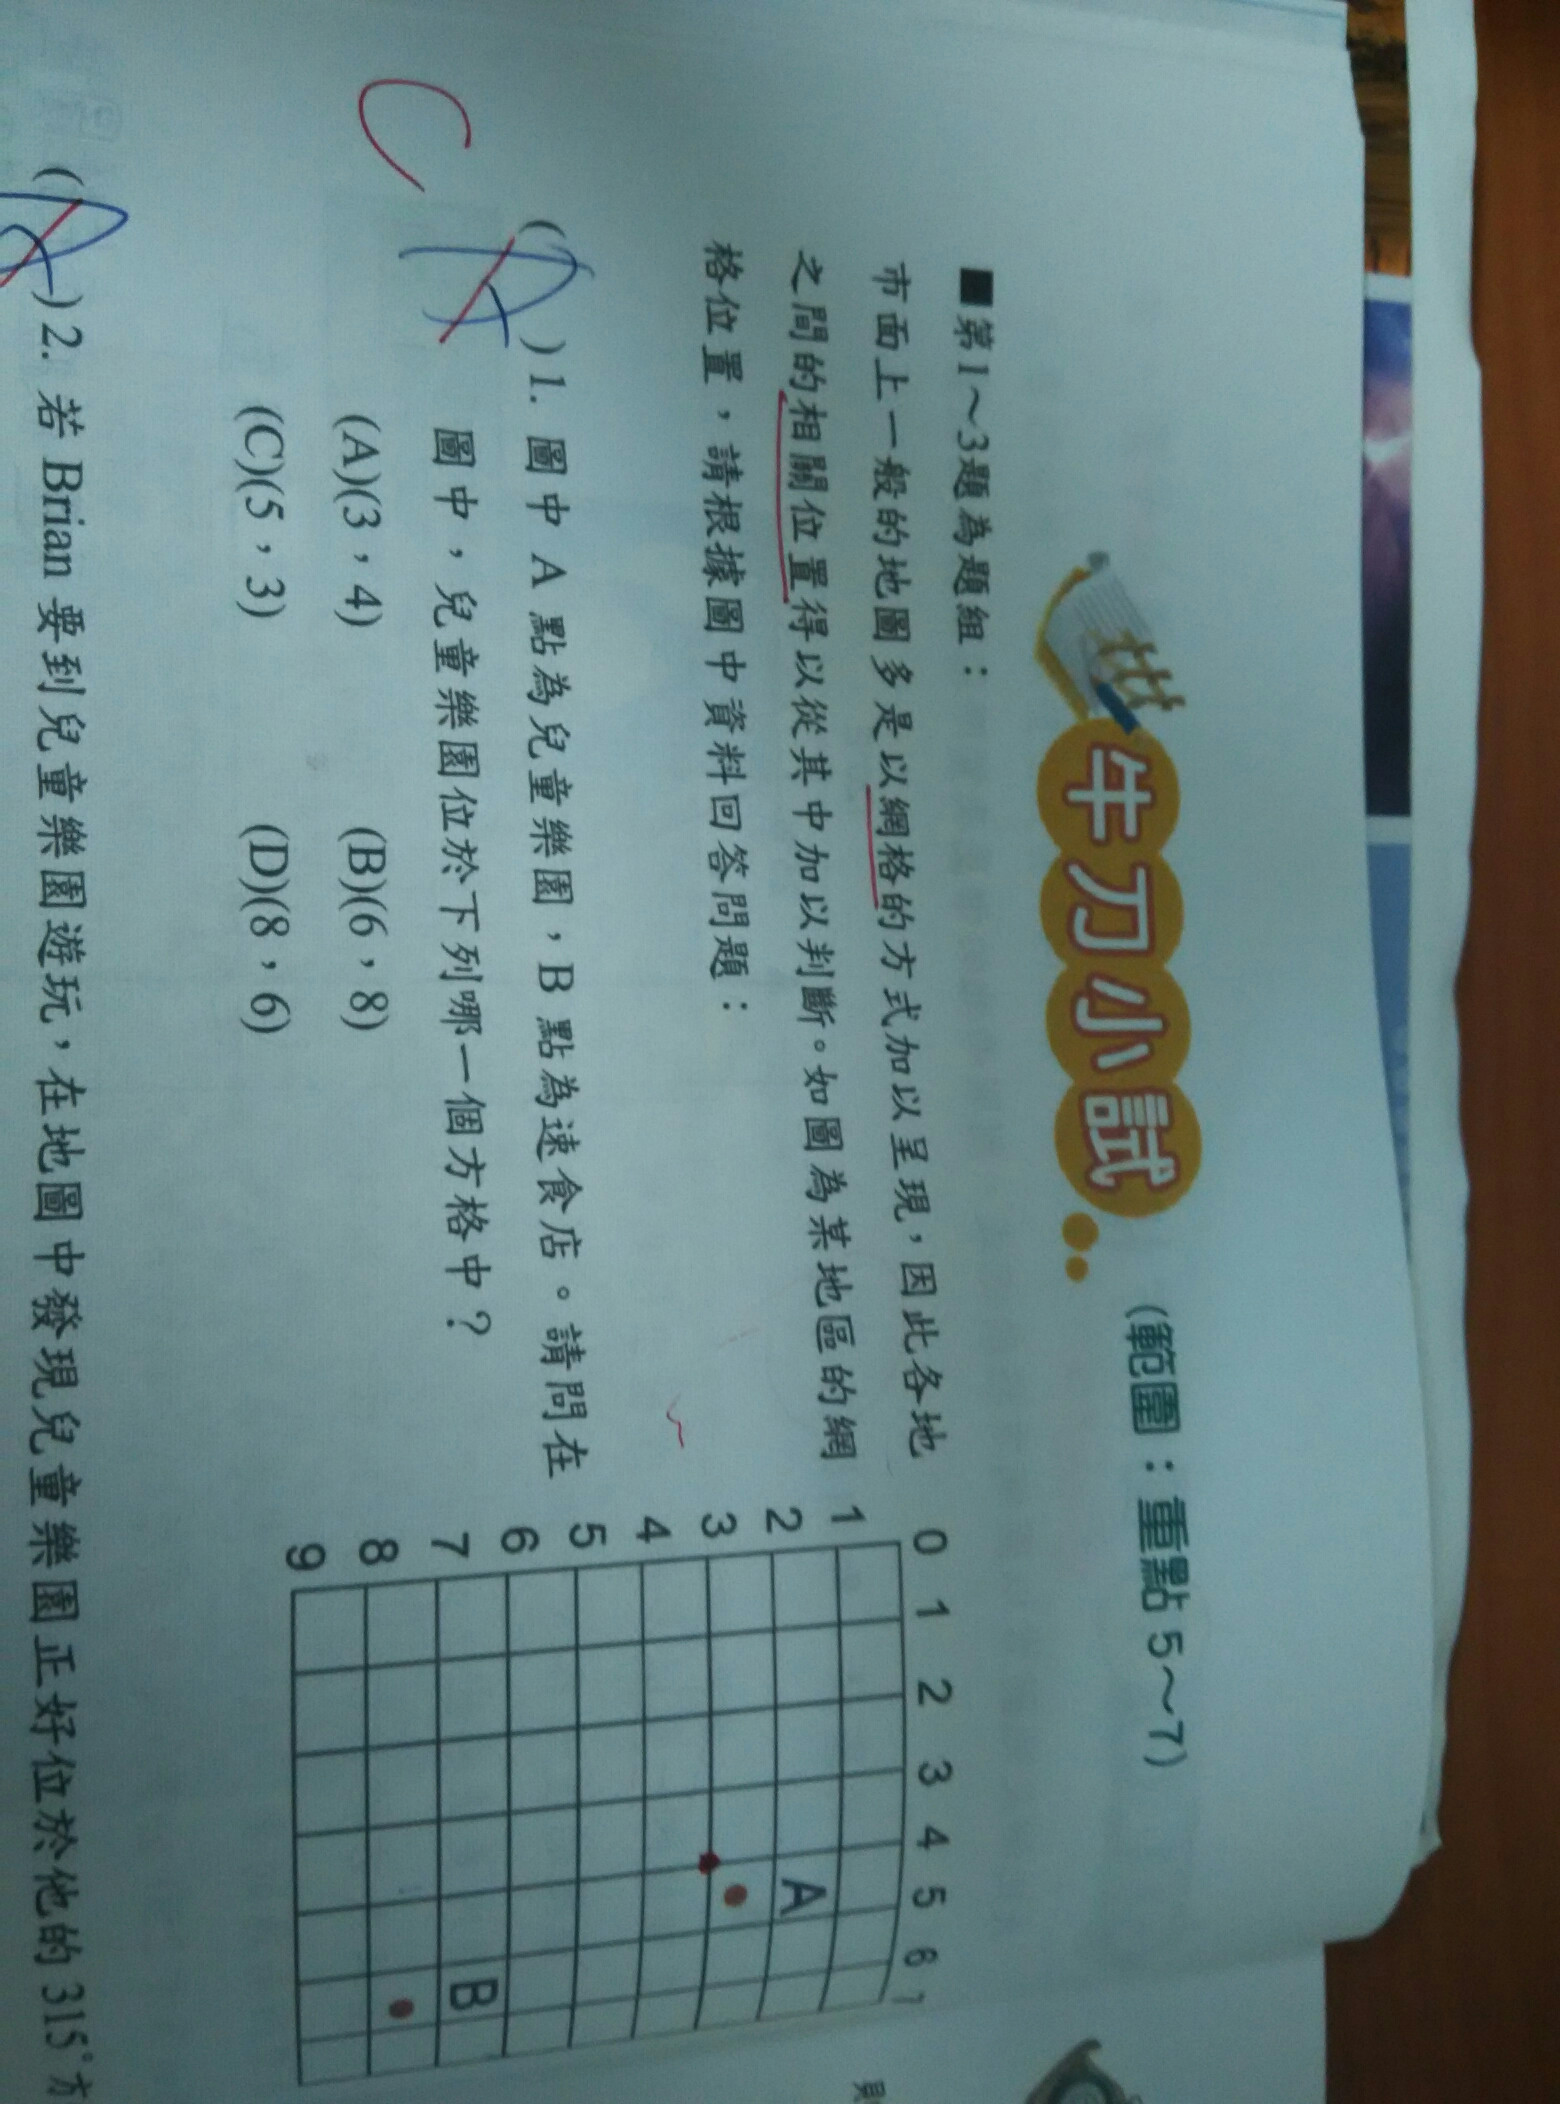 牛刀小試
(範圍：重點 5～7)
■第1～3題為題組：
市面上一般的地圖多是以網格的方式加以呈現，因此各地
之間的相關位置得以從其中加以判斷。如圖為某地區的網
格位置，請根據圖中資料回答問題：
C
(A) 1. 圖中 A 點為兒童樂園，B 點為速食店。請問在
圖中，兒童樂園位於下列哪一個方格中？
(A)(3，4) (B)(6，8)
(C)(5，3) (D)(8，6)
0 1 2 3 4 5 6 7
1
2
3
4
5
6
7
8
9
A
B
(A) 2. 若 Brian 要到兒童樂園遊玩，在地圖中發現兒童樂園正好位於他的 315°方